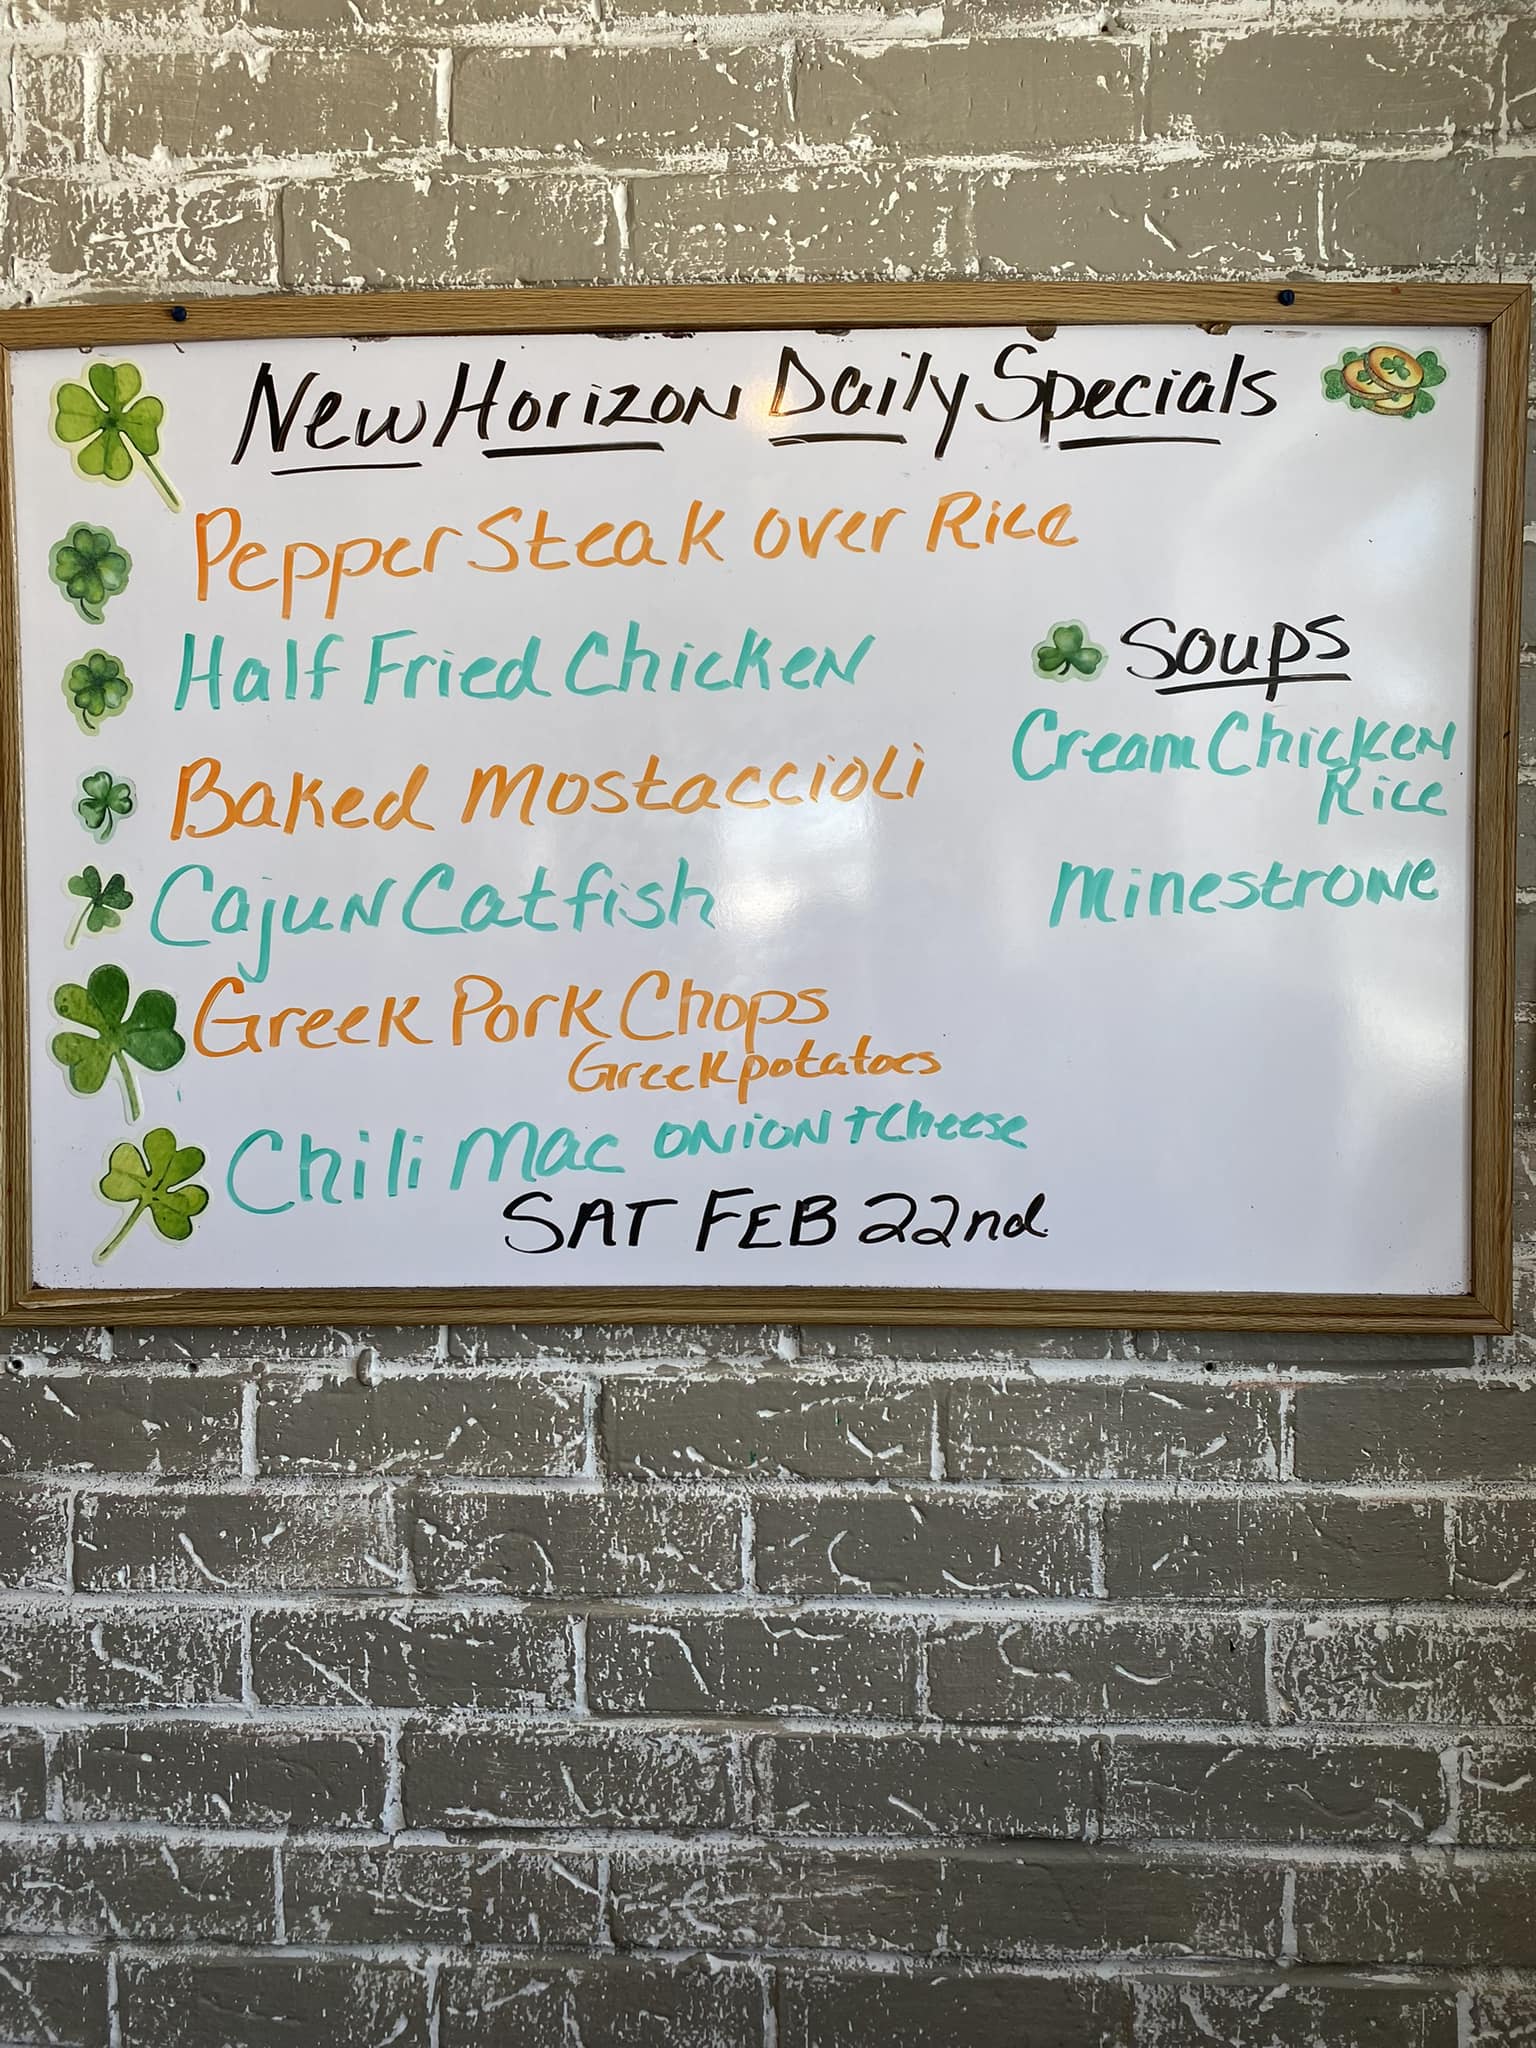 New Horizon Daily Specials
Pepper Steak over Rice
Half Fried Chicken
Baked Mostaccioli
Cajun Catfish
Greek Pork Chops
Greek potatoes
Chili Mac onion + Cheese
SAT FEB 22nd
Soups
Cream Chicken
Rice
Minestrone